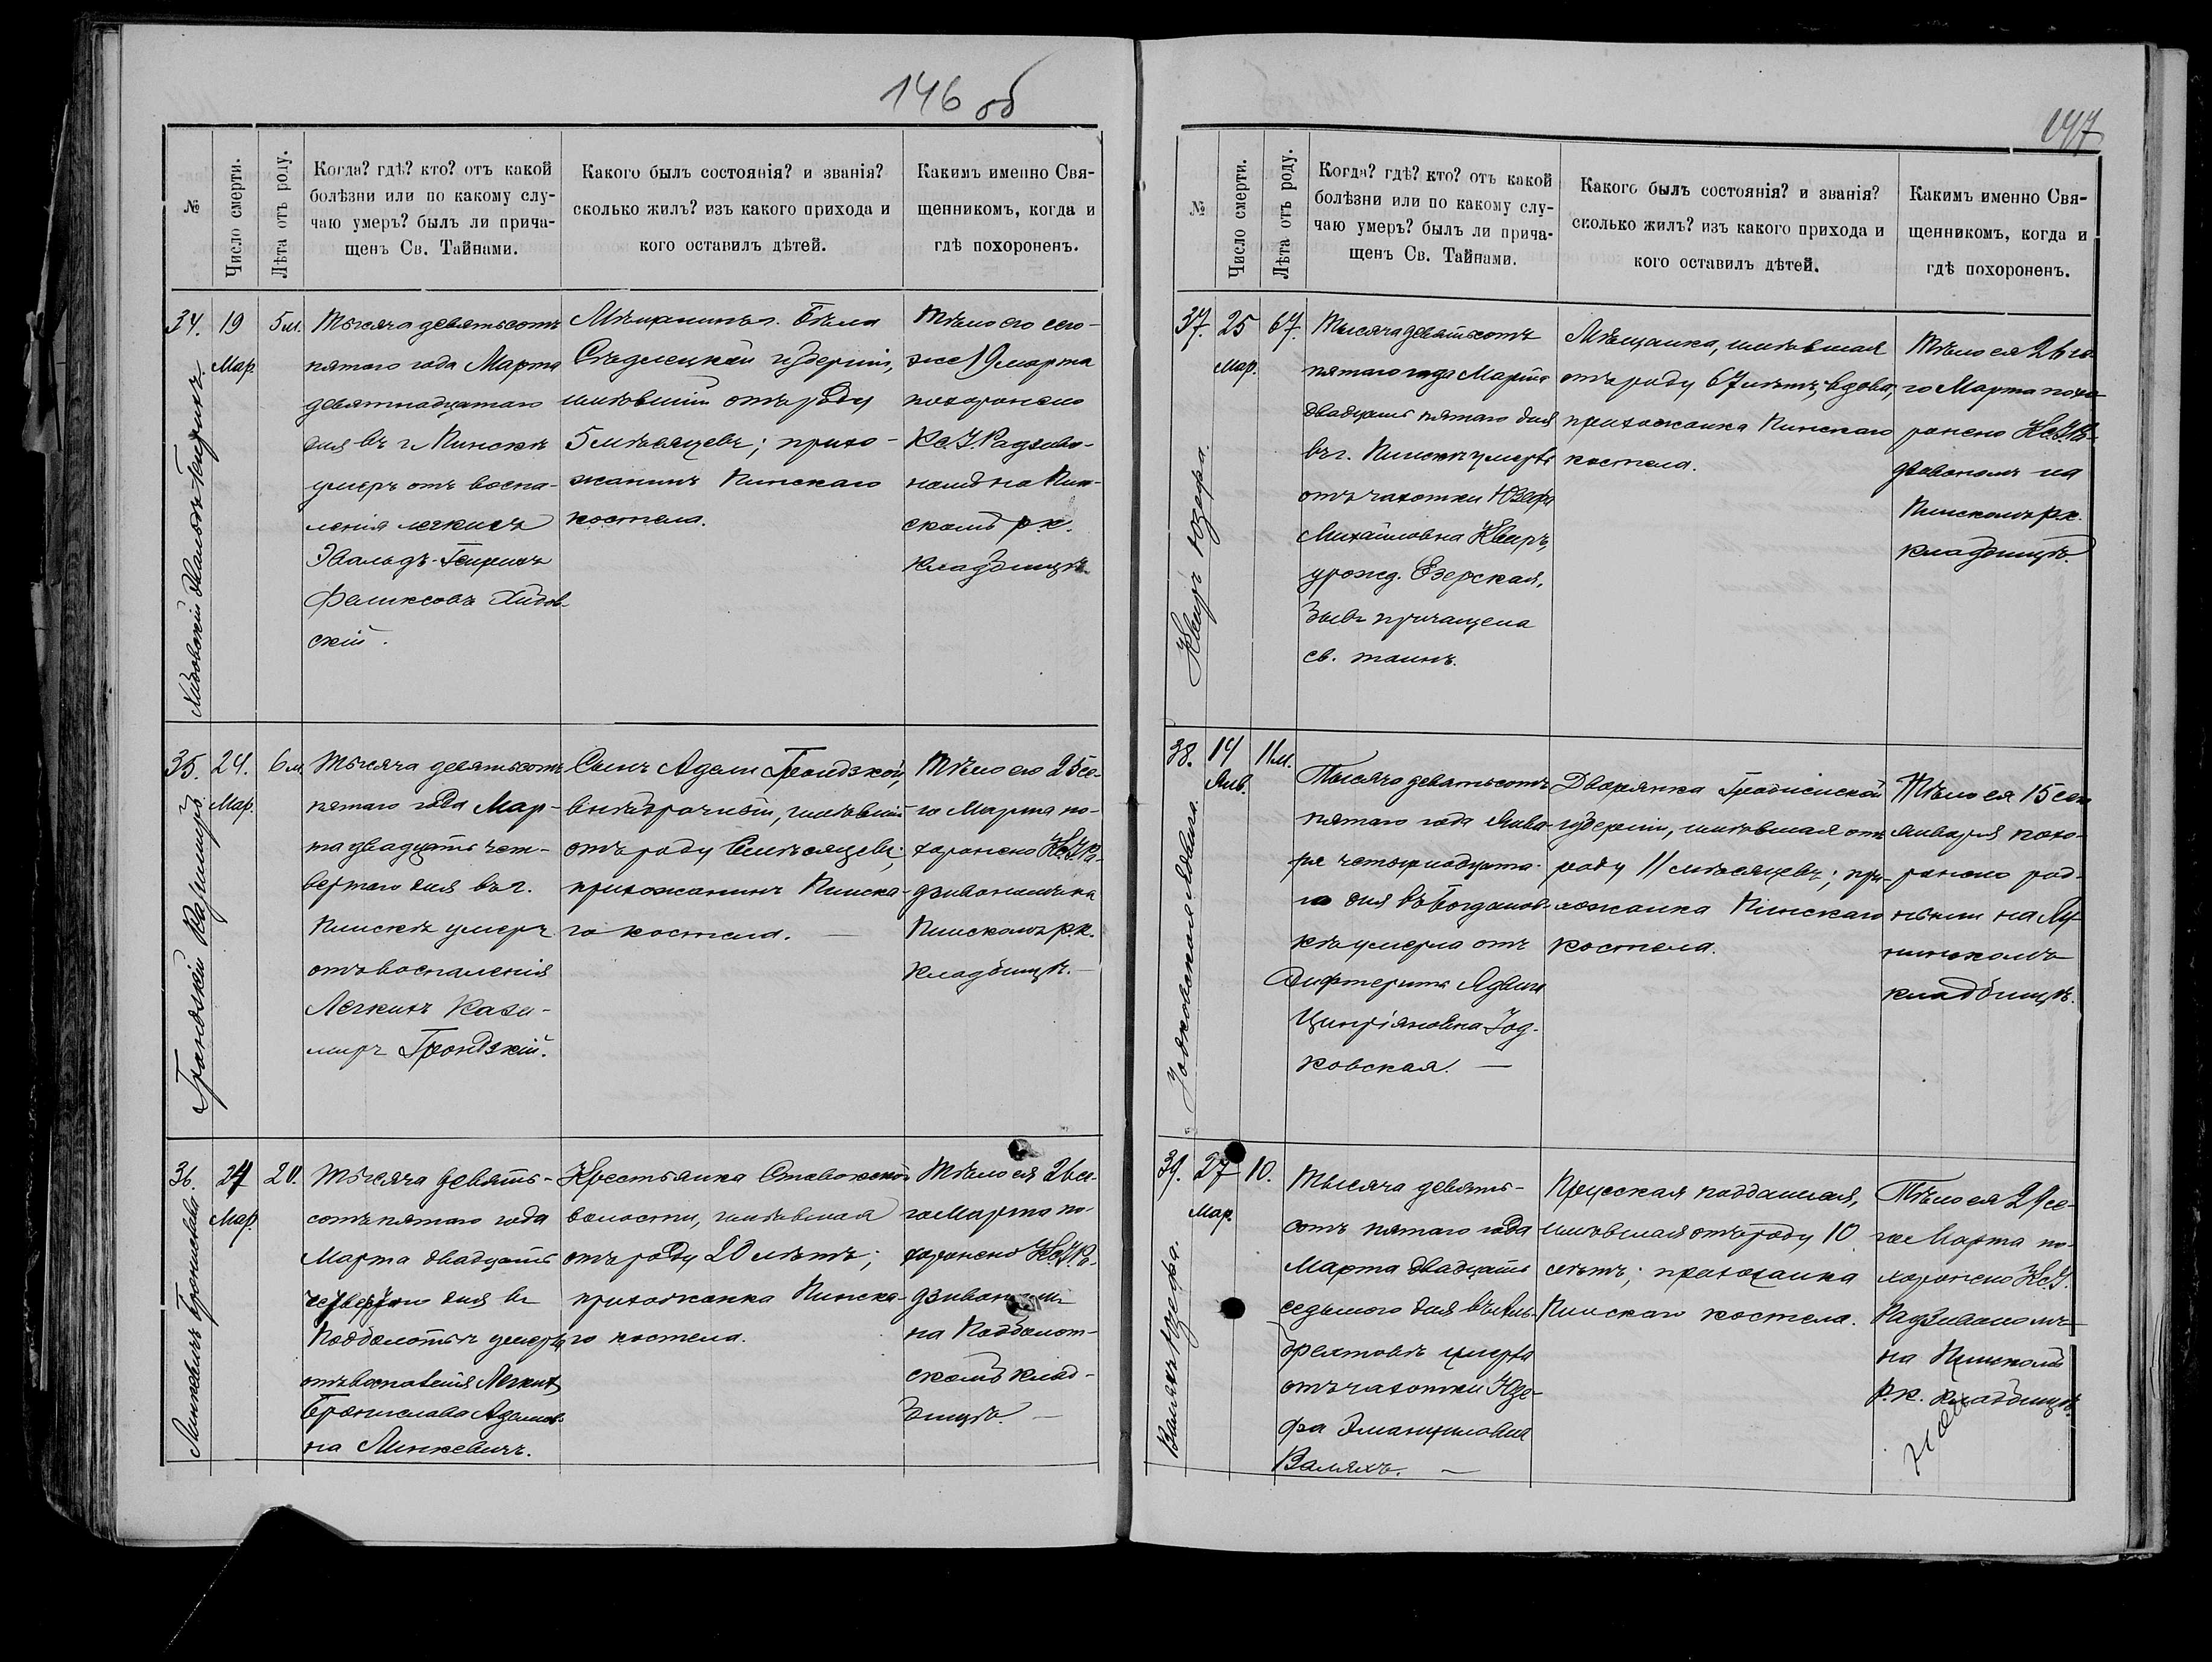 146 об
№
Число смерти.
Лѣта отъ роду.
Когда? гдѣ? кто? отъ какой
болѣзни или по какому слу-
чаю умеръ? былъ ли прича-
щенъ Св. Тайнами.
Какого былъ состоянія? и званія?
сколько жилъ? изъ какого прихода и
кого оставилъ дѣтей.
Какимъ именно Свя-
щенникомъ, когда и
гдѣ похороненъ.
34.
Хидовскій Эвальдъ-Генрихъ
19
Мар
5 м.
Тысяча девятьсотъ
пятаго года Марта
девятнадцатаго
дня въ г. Пинскѣ
умеръ отъ воспа-
ленія легкихъ
Эвальдъ-Генрихъ
Феликсовъ Хидов-
скій.
Мѣщанинъ г. Бѣла
Сѣдлецкой губерніи,
имѣвшій отъ роду
5 мѣсяцевъ; прихо-
жанинъ Пинскаго
костела.
Тѣло его сего-
же 19 марта
похоронено
Кс. І. Радзиво-
номъ на Пин-
скомъ р. к.
кладбищѣ.
35.
Грондзкій Казимиръ
24.
Мар.
6 м.
Тысяча девятьсотъ
пятаго года Мар-
та двадцать чет-
вертаго дня въ г.
Пинскѣ умеръ
отъ воспаленія
Легкихъ Кази-
миръ Грондзкій.
Сынъ Адели Грондзкой,
внѣбрачный, имѣвшій
отъ роду 6 мѣсяцевъ;
прихожанинъ Пинска-
го костела. —
Тѣло его 25 се-
го Марта по-
хоронено Кс. І. Ра-
дзивономъ на
Пинскомъ р. к.
кладбищѣ. —
36.
Линкевичъ Бронислава
24
Мар
20.
Тысяча девять-
сотъ пятаго года
Марта двадцать
четвертаго дня въ
Подболотьи умерла
отъ воспаленія Легкихъ
Бронислава Адамов-
на Линкевичъ.
Крестьянка Ставокской
волости, имѣвшая
отъ роду 20 лѣтъ;
прихожанка Пинска-
го костела.
Тѣло ея 26 се-
го Марта по-
хоронено Кс. І. Ра-
дзивономъ
на Подболот-
скомъ клад-
бищѣ. —
147
№
Число смерти.
Лѣта отъ роду.
Когда? гдѣ? кто? отъ какой
болѣзни или по какому слу-
чаю умеръ? былъ ли прича-
щенъ Св. Тайнами.
Какого былъ состоянія? и званія?
сколько жилъ? изъ какого прихода и
кого оставилъ дѣтей.
Какимъ именно Свя-
щенникомъ, когда и
гдѣ похороненъ.
37.
Квиръ Юзефа.
25
Мар.
67.
Тысяча девятьсотъ
пятаго года Марта
двадцать пятаго дня
въ г. Пинскѣ умерла
отъ чахотки Юзефа
Михайловна Квиръ,
урожд. Езерская,
бывъ причащена
св. таинъ.
Мѣщанка, имѣвшая
отъ роду 67 лѣтъ, вдова,
прихожанка Пинскаго
костела.
Тѣло ея 26 се-
го Марта похо-
ронено Кс. І. Ра-
дзивономъ на
Пинскомъ р. к.
кладбищѣ.
38.
Іодковская Ядвига.
14
Янв.
11 м.
Тысяча девятьсотъ
пятаго года Янва-
ря четырнадцата-
го дня въ Богданов-
кѣ умерла отъ
Дифтерита Ядвига
Ципріяновна Іод-
ковская. —
Дворянка Гродненской
губерніи, имѣвшая отъ
роду 11 мѣсяцевъ; при-
хожанка Пинскаго
костела.
Тѣло ея 15 сего
января похо-
ронено род-
ными на Лу-
нинскомъ
кладбищѣ.
39.
Валяхъ Юзефа.
27
Мар.
10.
Тысяча девять-
сотъ пятаго года
Марта двадцать
седьмого дня въ Аль-
брехтовѣ умерла
отъ чахотки Юзе-
фа Эмануиловна
Валяхъ. —
Прусская подданная,
имѣвшая отъ роду 10
лѣтъ; прихожанка
Пинскаго костела.
Тѣло ея 29 се-
го Марта по-
хоронено Кс. І.
Радзивономъ
на Пинскомъ
р. к. кладбищѣ.